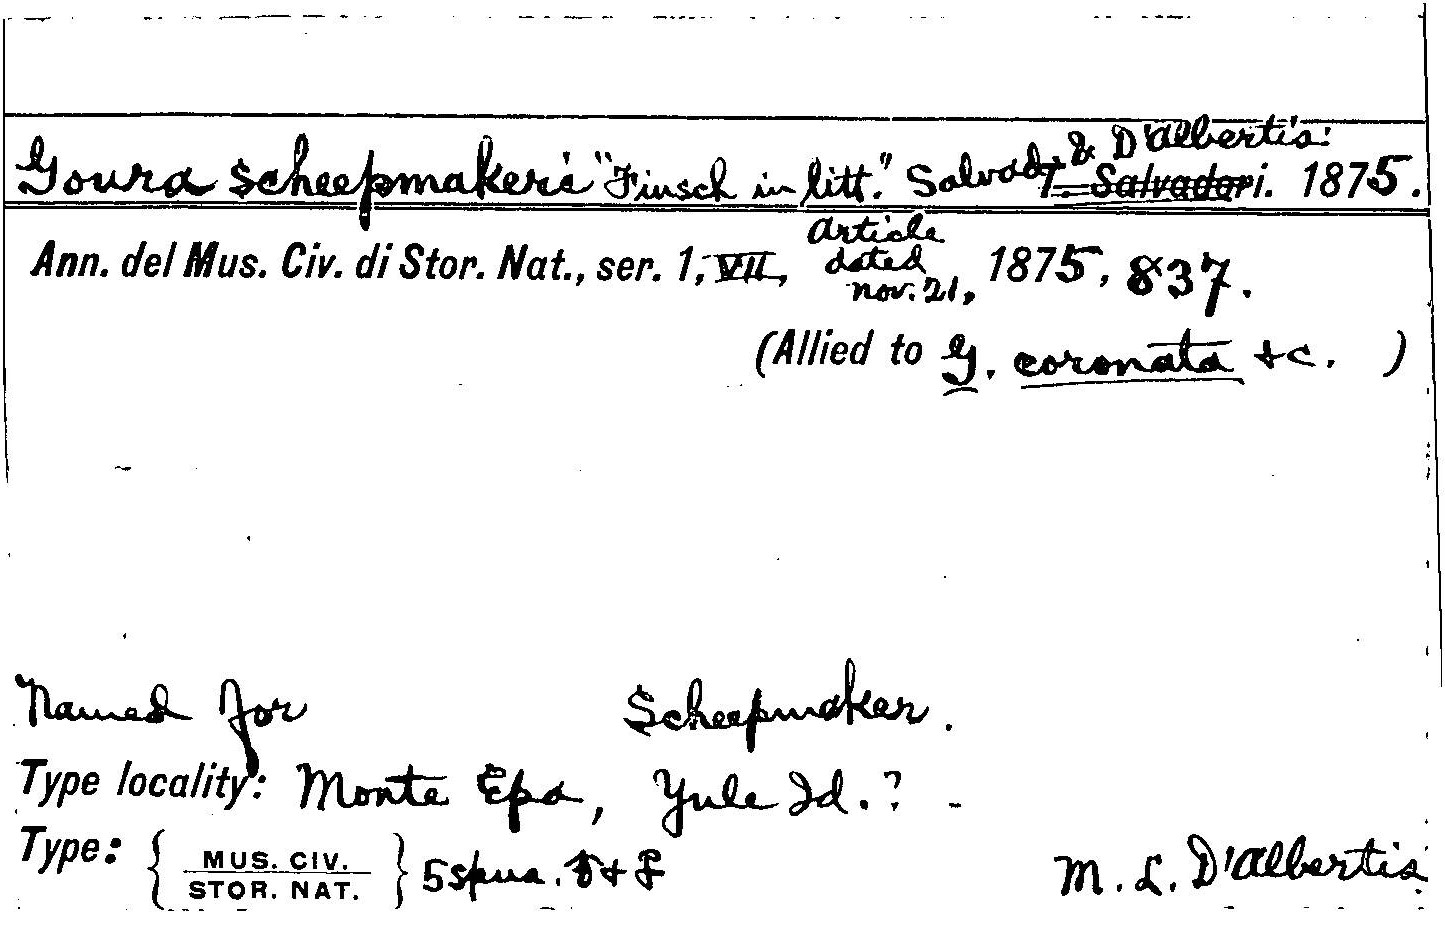 Goura scheepmakeri "Finsch in litt." Salvad. & D'Albertis. T. Salvadori. 1875.
Ann. del Mus. Civ. di Stor. Nat., ser. 1, VII, Article dated nov. 21, 1875, 837.
(Allied to G. coronata &c. )
Named for Scheepmaker.
Type locality: Monte Epa, Yule Id.? -
Type: { MUS. CIV. STOR. NAT. } 5 spms. ♂ + ♀ M. L. D'Albertis